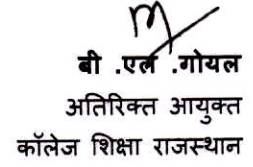 बी .एल .गोयल
अतिरिक्त आयुक्त
कॉलेज शिक्षा राजस्थान